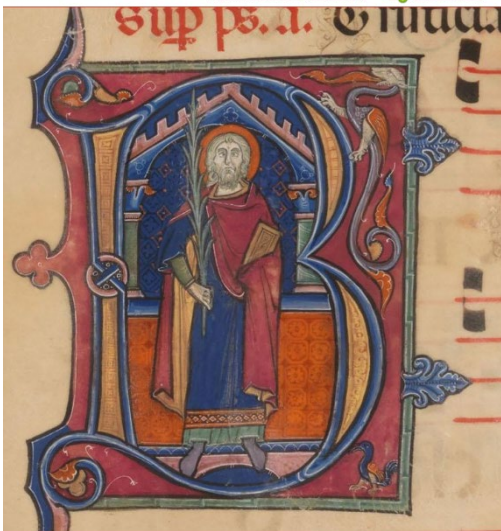 Sup̄ ps. a.
B